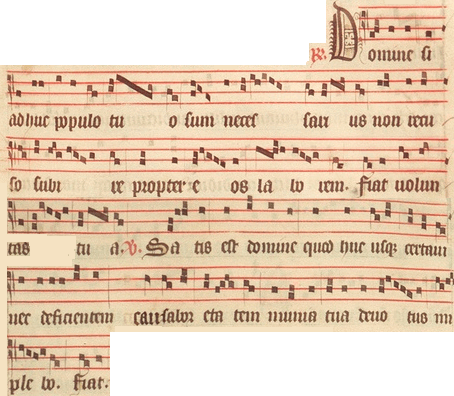 ℟. Domine si
adhuc populo tu o sum neces sari us non recu
so subi re propter e os la bo rem. Fiat uolun
tas tu a. ℣. Sa tis est domine quod huc usqz certaui
nec deficientem causabor eta tem munia tua deuo tus im
ple bo. Fiat.